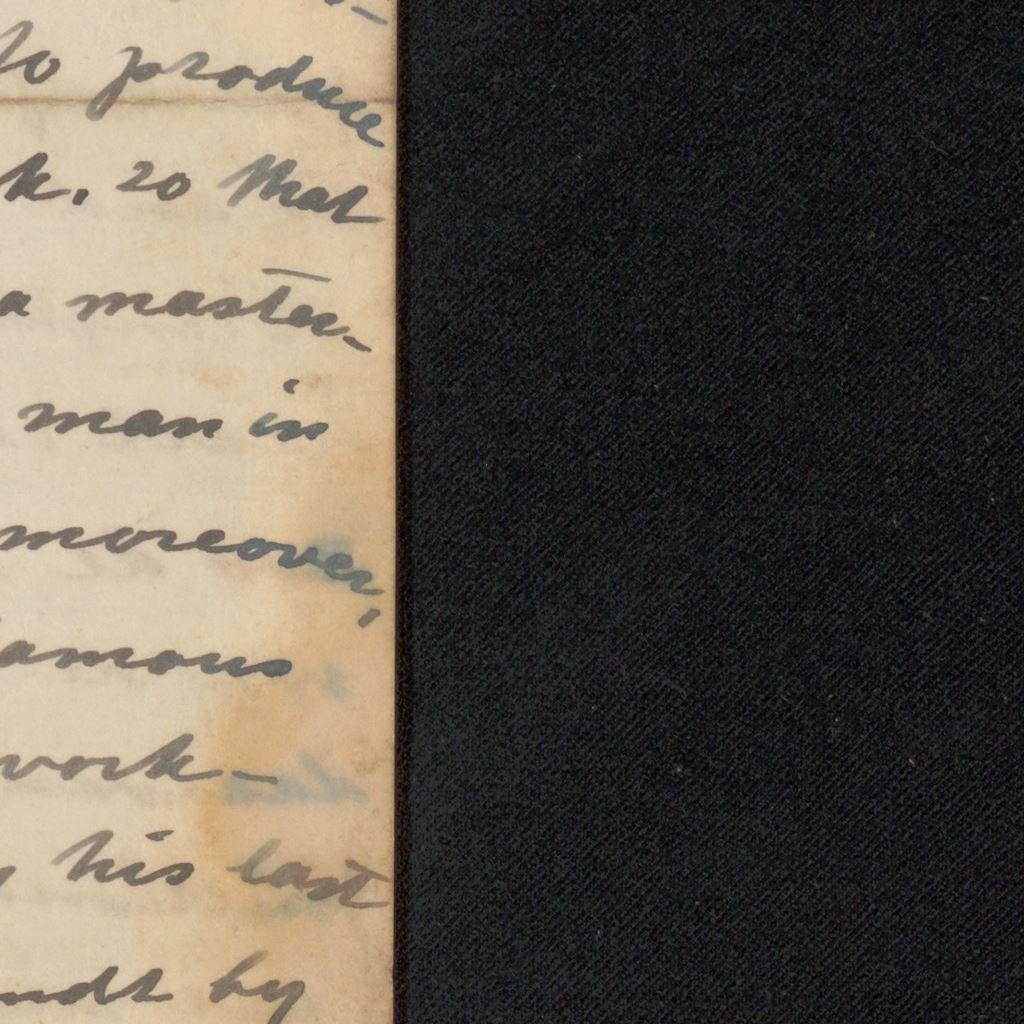 to produce
k. so that
a master-
man in
moreover,
famous
work-
his last
ndt by